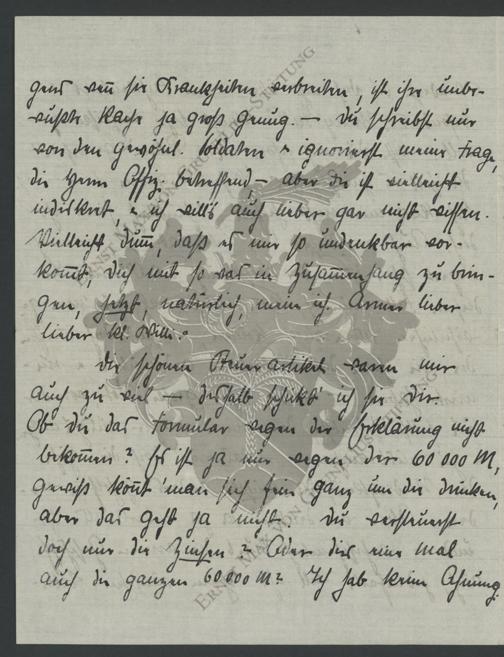 gend wenn sie Krankheiten verbreiten, ist ihre unbe-
wußte Rache ja groß genug. — Du schreibst nur
von den gewöhnl. Soldaten & ignorierst meine Frage,
die Herrn Offiz. betreffend, — aber die ist vielleicht
indiskret, & ich will's auch lieber gar nicht wissen.
Vielleicht dumm, daß es mir so undenkbar vor-
kommt, Dich mit so was in Zusammenhang zu brin-
gen, jetzt, natürlich, meine ich. Armer lieber
lieber kl. Willi.
Die schönen Steuerartikel waren mir
auch zu viel — deshalb schickt' ich sie Dir
Ob Du das Formular wegen der Erklärung nicht
bekommen? Es ist ja nur wegen der 60 000 M,
gewiß könnt' man sich fein ganz um die drücken,
aber das geht ja nicht. Du versteuerst
doch nur die Zinsen? Oder dies eine Mal
auch die ganzen 60 000 M? Ich hab keine Ahnung.